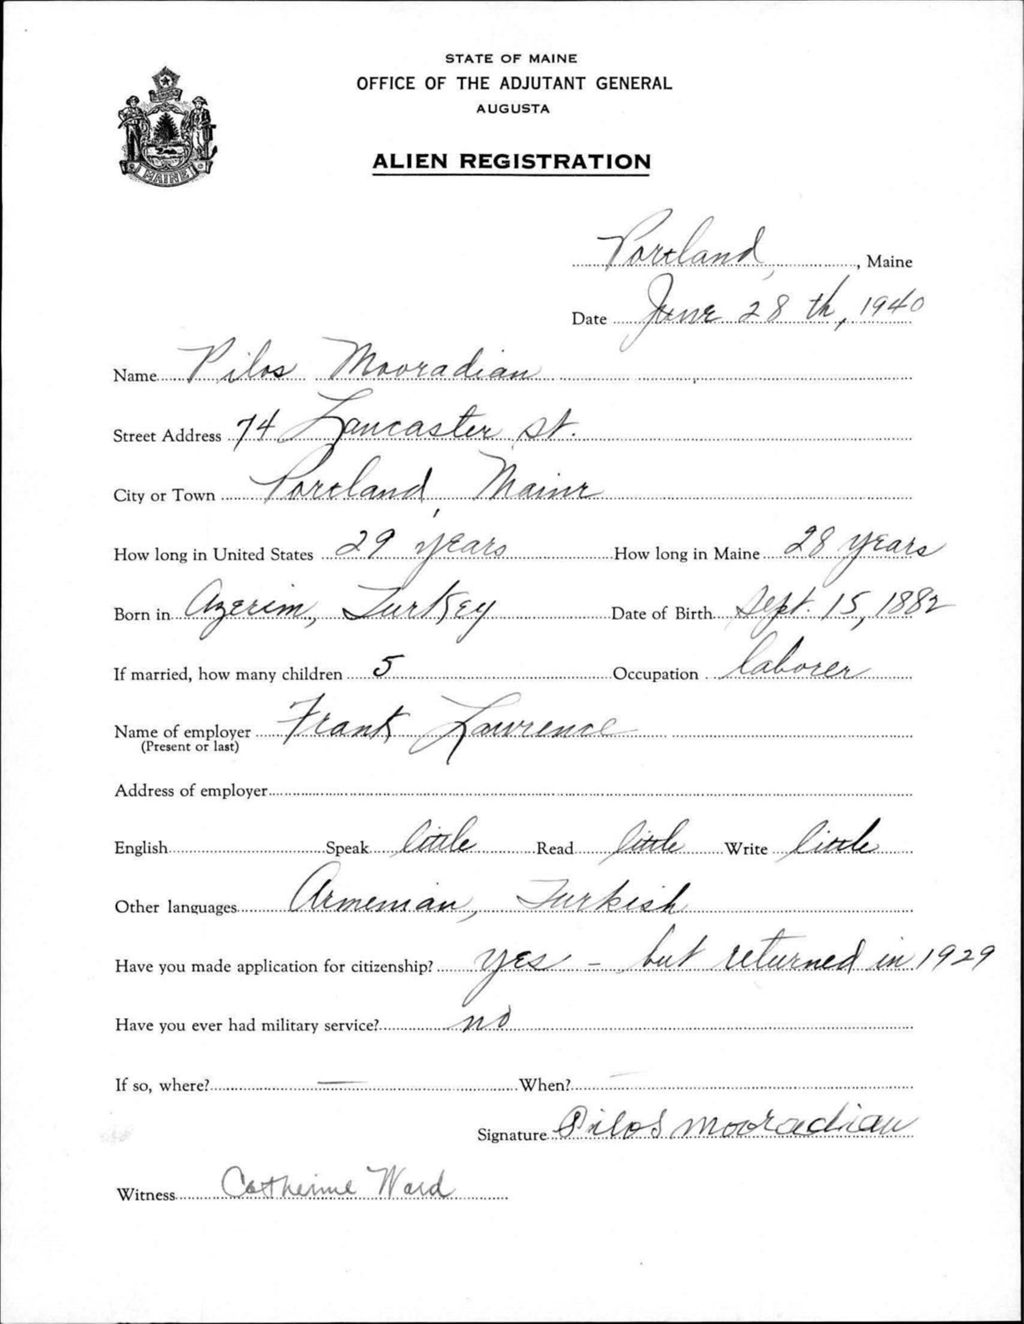 STATE OF MAINE
OFFICE OF THE ADJUTANT GENERAL
AUGUSTA
ALIEN REGISTRATION
MAINE
Portland, , Maine
Date June 28th, 1940
Name Pilos Mooradian
Street Address 74 Lancaster St.
City or Town Portland, Maine
How long in United States 29 years How long in Maine 28 years
Born in Azerim, Turkey Date of Birth Sept. 15, 1882
If married, how many children 5 Occupation laborer
Name of employer Frank Lawrence
(Present or last)
Address of employer
English Speak little Read little Write little
Other languages Armenian, Turkish
Have you made application for citizenship? yes - but returned in 1929
Have you ever had military service? no
If so, where? — When? —
Signature Pilos Mooradian
Witness Catherine Ward